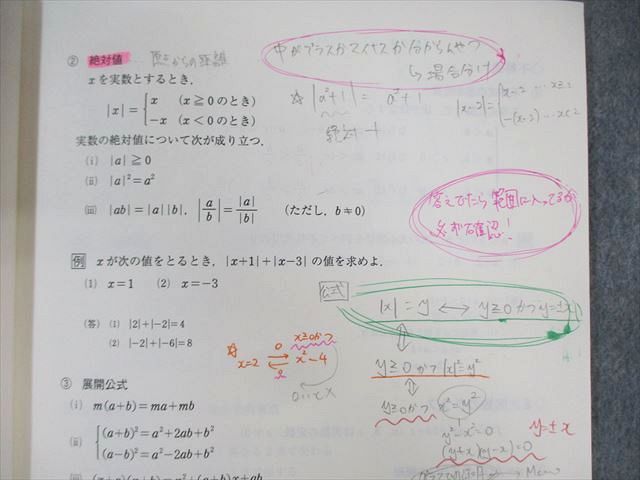 ② 絶対値 … 原点からの距離
xを実数とするとき,
|x|={x (x≧0のとき)
−x (x<0のとき)
実数の絶対値について次が成り立つ.
(i) |a|≧0
(ii) |a|²=a²
(iii) |ab|=|a||b|, |a/b|=|a|/|b| (ただし, b≠0)
中がプラスかマイナスか分からんやつ
↳ 場合分け
☆ |a²+1| = a²+1
絶対 +
|x-2|={x-2 … x≥2
-(x-2) … x<2
答えでたら範囲に入ってるか
必ず確認!
例 xが次の値をとるとき, |x+1|+|x−3| の値を求めよ.
(1) x=1 (2) x=−3
(答) (1) |2|+|−2|=4
(2) |−2|+|−6|=8
公式
|x| = y ⟷ y≥0 かつ y=±x
⇕
y≥0 かつ |x|²=y²
⇕
y≥0 かつ x²=y²
y²-x²=0
(y+x)(y-x)=0
y=±x
☆
x=2 ⇄ x²=4
x≥0かつ
③ 展開公式
(i) m(a+b)=ma+mb
(ii) {(a+b)²=a²+2ab+b²
(a−b)²=a²−2ab+b²
(iii) (x+a)(x+b)=x²+(a+b)x+ab